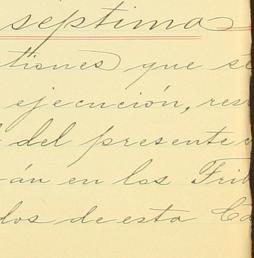 septima
tiones que se
ejecución, res
del presente
rán en los Trib
dos de esta Ca